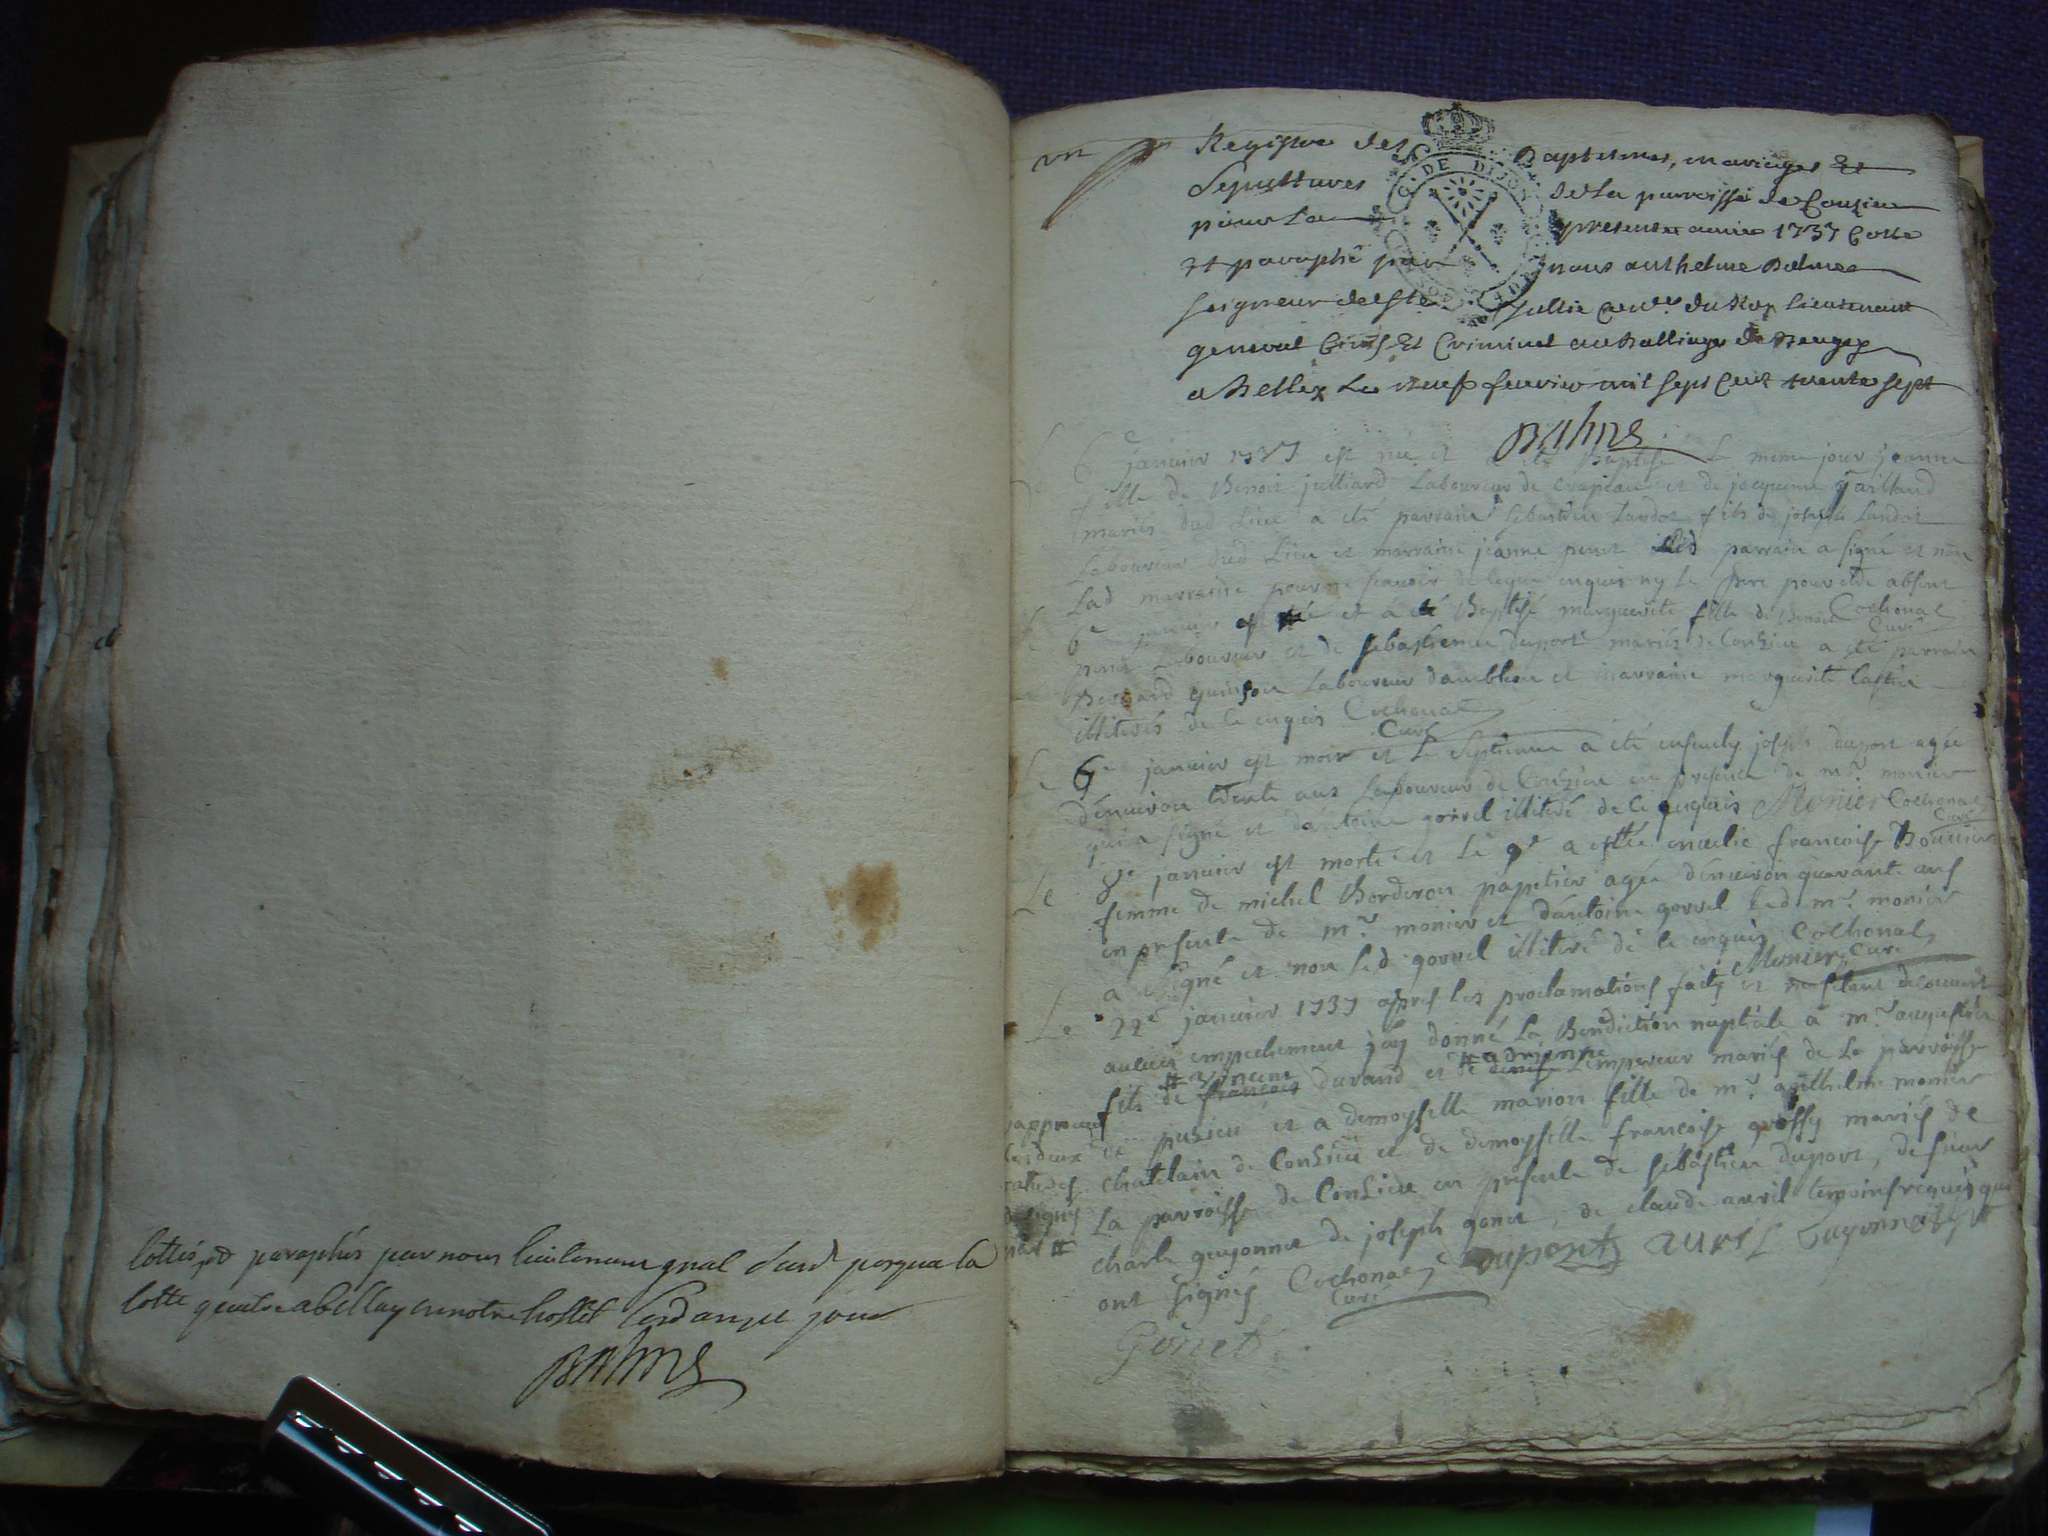 Cottés et paraphés par nous lieutenant gnal
cotte
Balme
un
Registre des Baptesmes, mariages Et
Sepultures de la parroisse de Conzieu
pour La presente année 1737 Cotté
et paraphé par nous anthelme Balme
seigneur de Ste Jullie Coner du Roy Lieutenant
general Civil Et Criminel au Balliage de Beugey
a Belley Le neuf fevrier mil sept cent trente sept
G. DE DIJON
Balme
Le 6e janvier 1737 est née et a été Baptisé Le meme jour jeanne
fille de Benoit julliard Laboureur de crapeau et de jacquema gaillard
mariés dud Lieu a été parrain sebastien Landoz fils de joseph Landoz
Laboureur dud Lieu et marraine jeanne penet led parrain a signé et non
Lad marraine pour ne scavoir de ce enquis ny Le pere pour etre absent
Cochonat
Curé
Le 6e janvier est née et a été Baptisé marguerite fille de Benoit
penet Laboureur et de sebastienne dupont mariés de Conzieu a été parrain
Bernard quinson Laboureur d'ambleon et marraine marguerite
illiterés de ce enquis Cochonat
Curé
Le 6e janvier est mort et Le septieme a été ensevely joseph dupont agée
d'environ trente ans Laboureur de Conzieu en presence de mr. monier
qui a signé et d'antoine gorrel illiteré de ce enquis Monier Cochonat
Curé
Le 8e janvier est morte et Le 9e a esté francoise Bouvier
femme de michel Borderon papetier agée d'environ quarante ans
en presence de mr. monier et d'antoine gorrel Led mr. monier
a signé et non Led gorrel illiteré de ce enquis Cochonat
Monier Curé
Le 22e janvier 1737 apres les proclamations faites et decouvert
aucun empechement j'ay donné La Benediction nuptiale a mr. augustin
# vincent # adrienne
fils de francois durand et de Lempereur mariés de La parroisse
de pusieu et a demoyselle marion fille de mr. anthelme monier
chatelain de Conzieu et de demoyselle francoise grossy mariés de
La parroisse de Conzieu en presence de sebastien dupont, de sieur
charle guyonnet de joseph gonet, de claude avril temoins requis qui
ont signés Cochonat Dupont avril Guyonnet
Curé
Gonet
approuvé
les deux